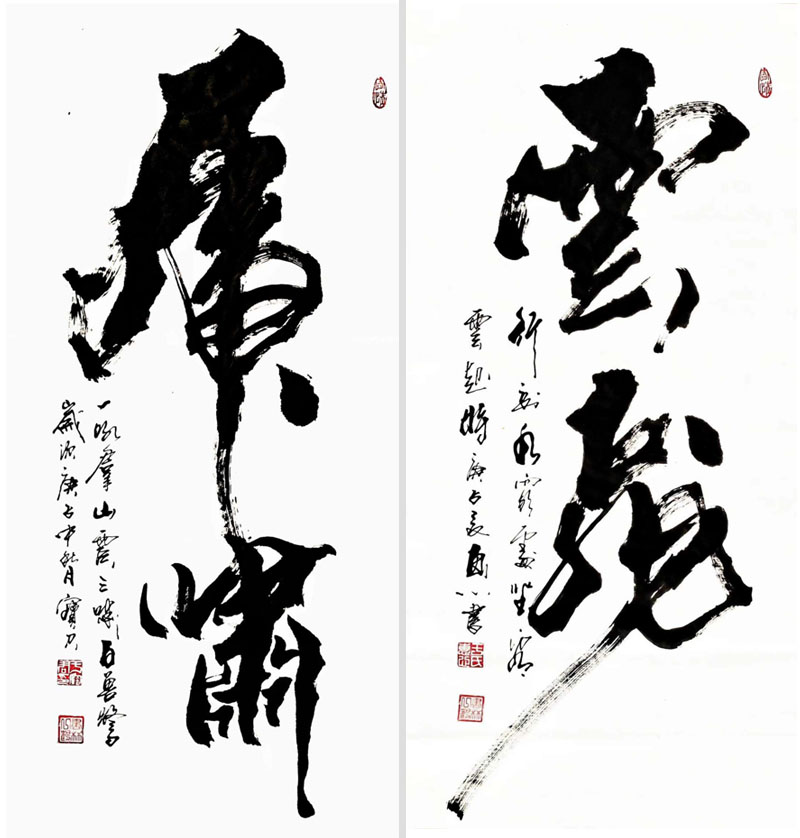 虎嘯
一吼羣山震三嘯百獸驚
歲次庚子中秋月寶刀
雲龍
行到水窮處坐看
雲起時庚子夏書